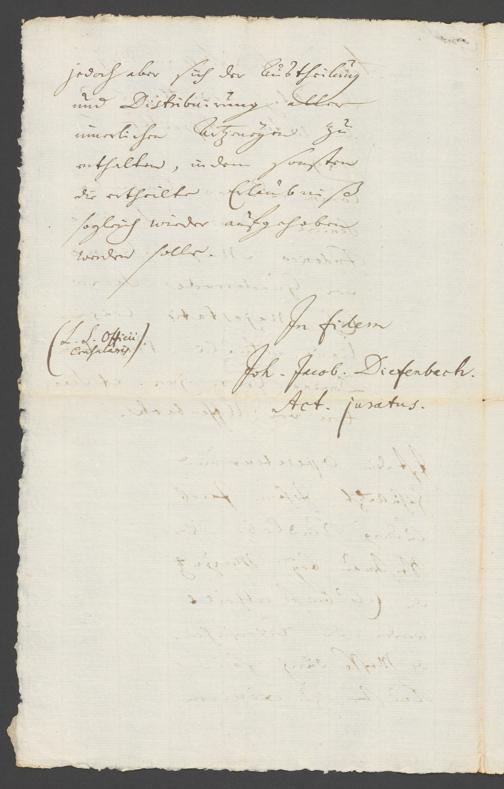 jedoch aber sich der Austheilung
und Distribuirung aller
innerlichen Artzeneyen zu
enthalten, indem sonsten
die ertheilte Erlaubniß
sogleich wieder aufgehoben
werden solle.
In fidem
(L. S. Officii
Consularis).
Joh. Jacob. Diefenbach.
Act. juratus.